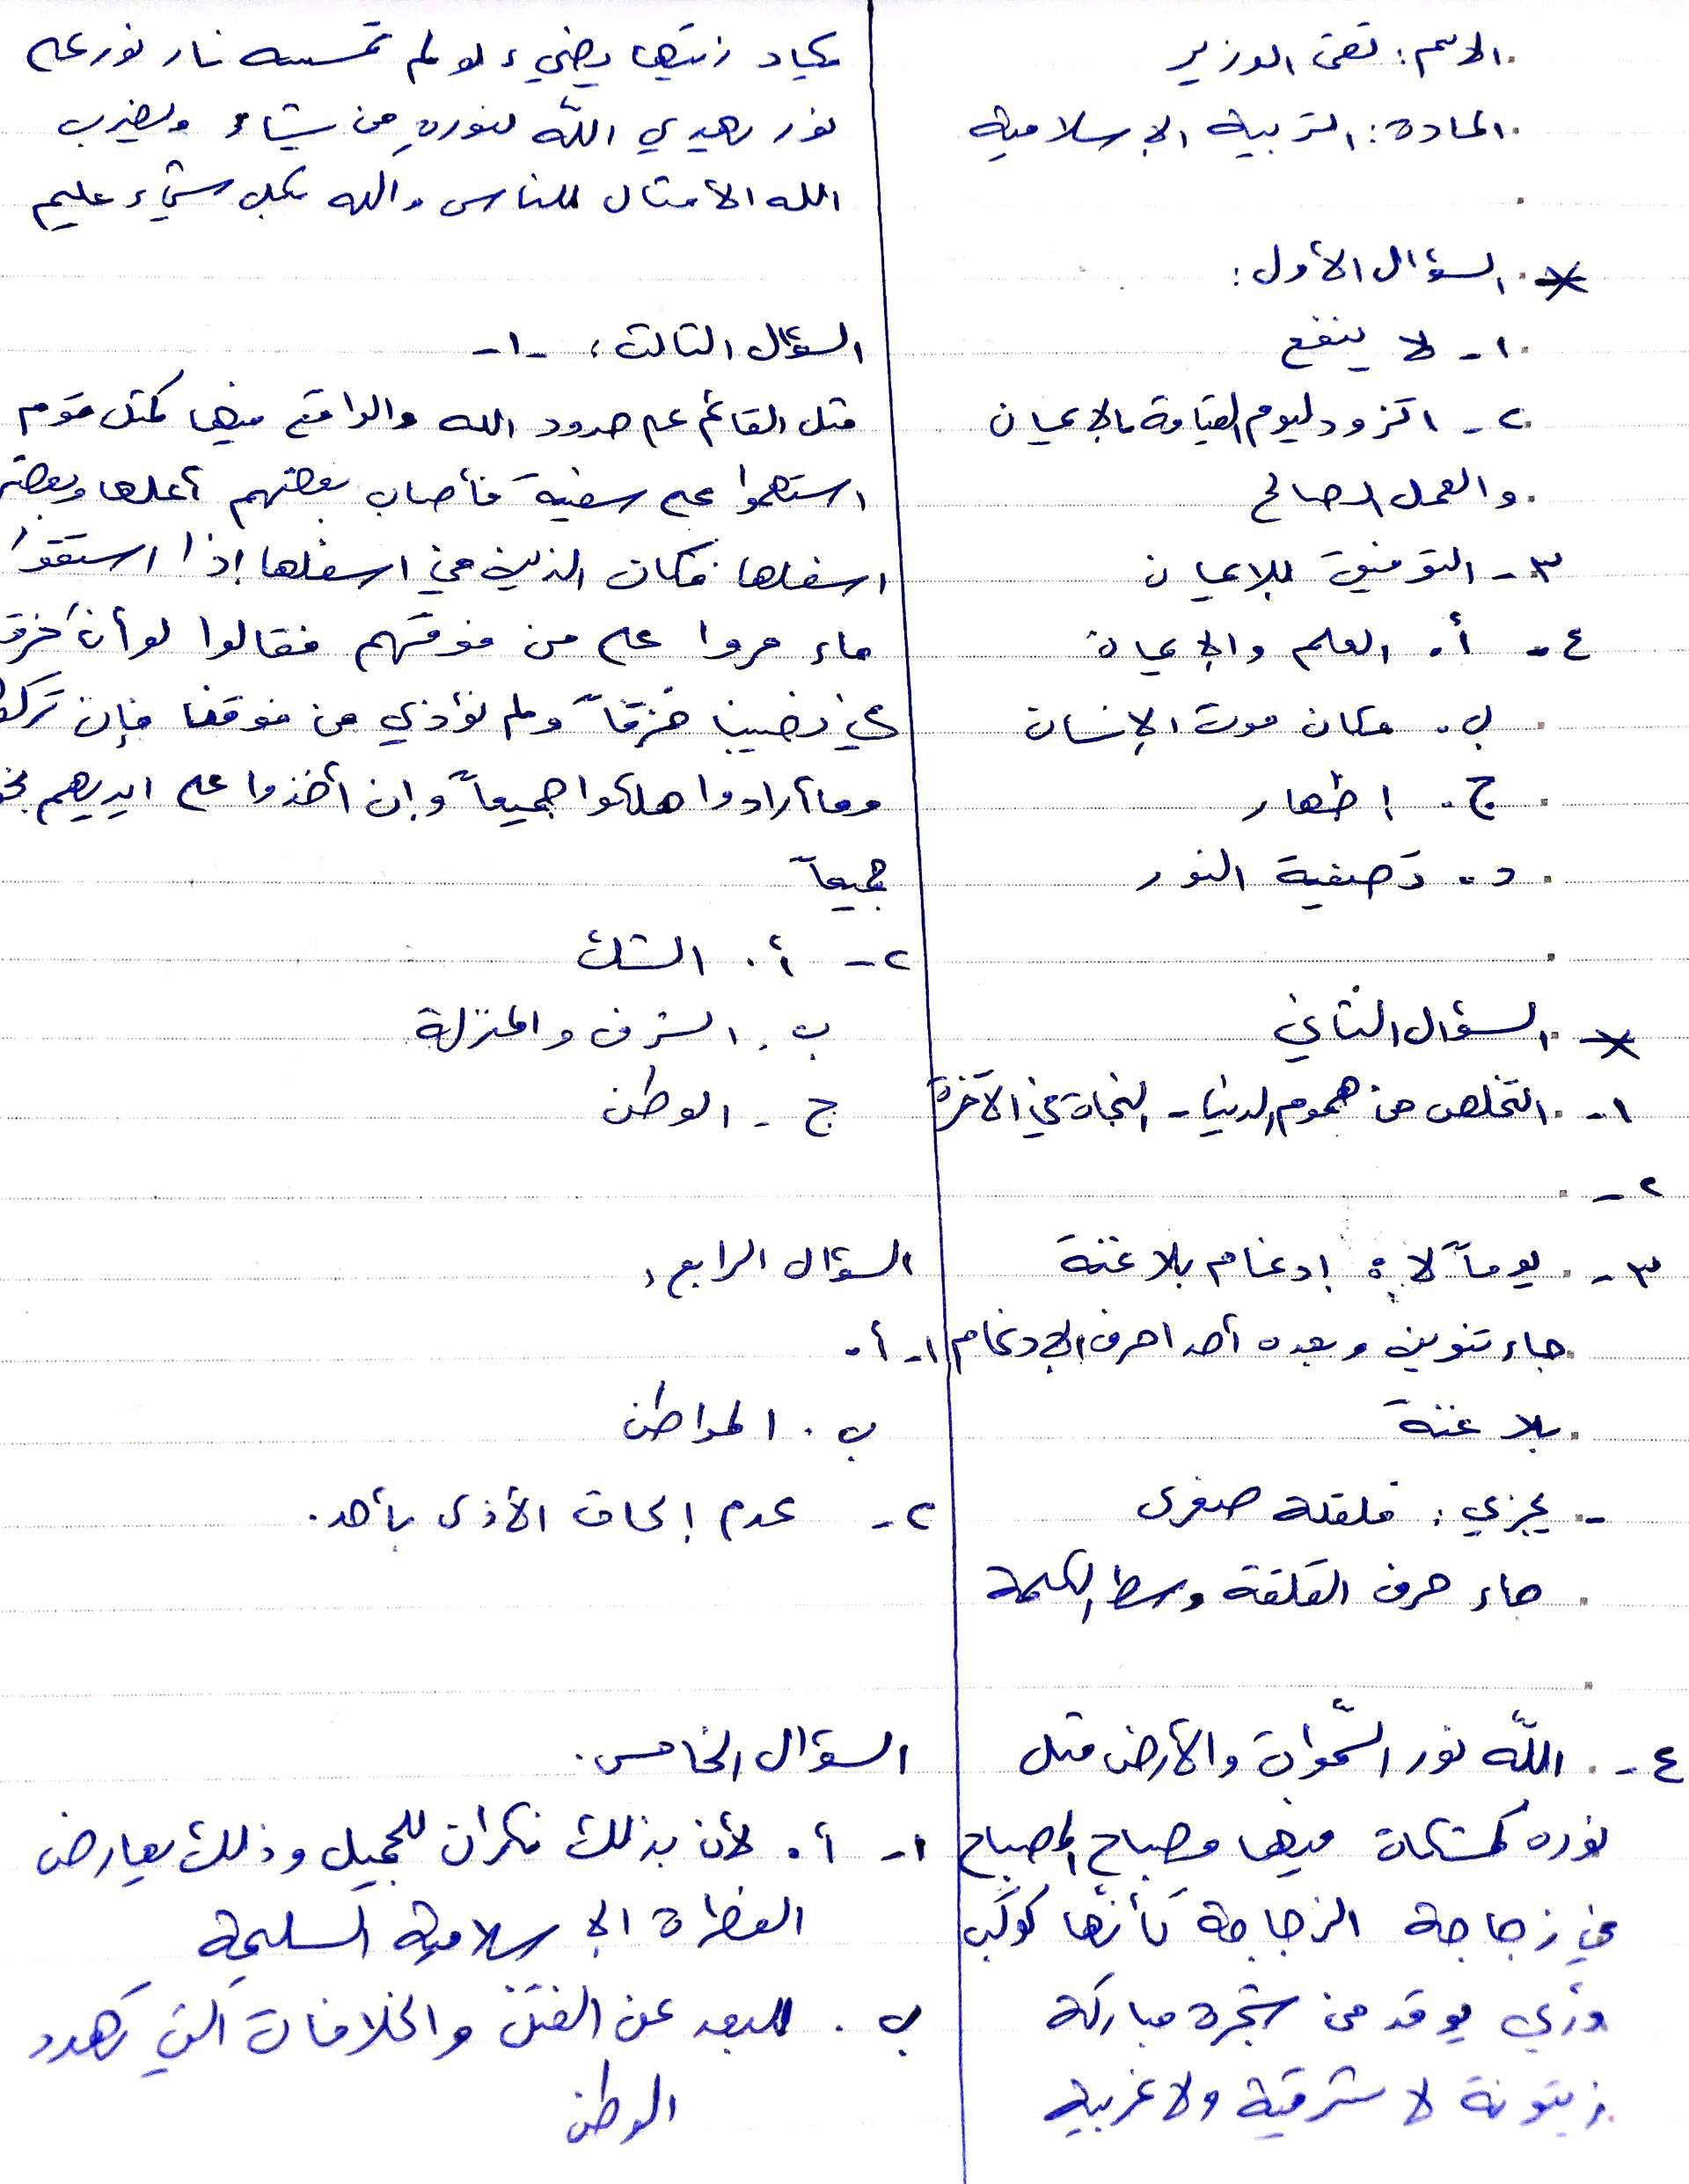 الاسم: تقى الوزير
المادة: التربية الإسلامية
السؤال الأول:
١- لا ينفع
٢- اتزود ليوم القيامة بالإيمان
والعمل الصالح
٣- التوفيق للإيمان
٤- أ. العلم والإيمان
ب. مكان موت الإنسان
ج. اظهار
د. تصفية النور
السؤال الثاني
١- التخلص من هموم الدنيا - النجاة في الآخرة
٢-
٣- يوماً لا: إدغام بلا غنة
جاء تنوين وبعده أحد احرف الإدغام
بلا غنة
- يجزي: قلقلة صغرى
جاء حرف القلقة وسط الكلمة
٤- اللّه نور السّموات والأرض مثل
نوره كمشكاة فيها مصباح المصباح
في زجاجة الزجاجة كأنّها كوكب
درّي يوقد من شجرة مباركة
زيتونة لا شرقية ولا غربية
يكاد زيتها يضيء لو لم تمسسه نار نور على
نور يهدي اللّه لنورهِ من يشاء ويضرب
الله الأمثال للناس والله بكل شيء عليم
السؤال الثالث، -١-
مثل القائم على حدود الله والواقع فيها كمثل قوم
استهموا على سفينة فأصاب بعضهم أعلاها وبعضهم
اسفلها فكان الذين في اسفلها إذا استقوا
ماء مروا على من فوقهم فقالوا لو أنا خرقنا
في نصيبنا خرقاً ولم نؤذي من فوقنا فإن تركوا
وما أرادوا هلكوا جميعاً وإن أخذوا على ايديهم نجوا
جميعاً
٢- أ. الشك
ب. الشرف والمنزلة
ج - الوطن
السؤال الرابع،
١- أ.
ب. المواطن
٢- عدم إلحاق الأذى بأحد.
السؤال الخامس.
١- أ. لأن بذلك نكران للجميل وذلك يعارض
الفطرة الإسلامية السليمة
ب. للبعد عن الفتن والخلافات التي تهدد
الوطن